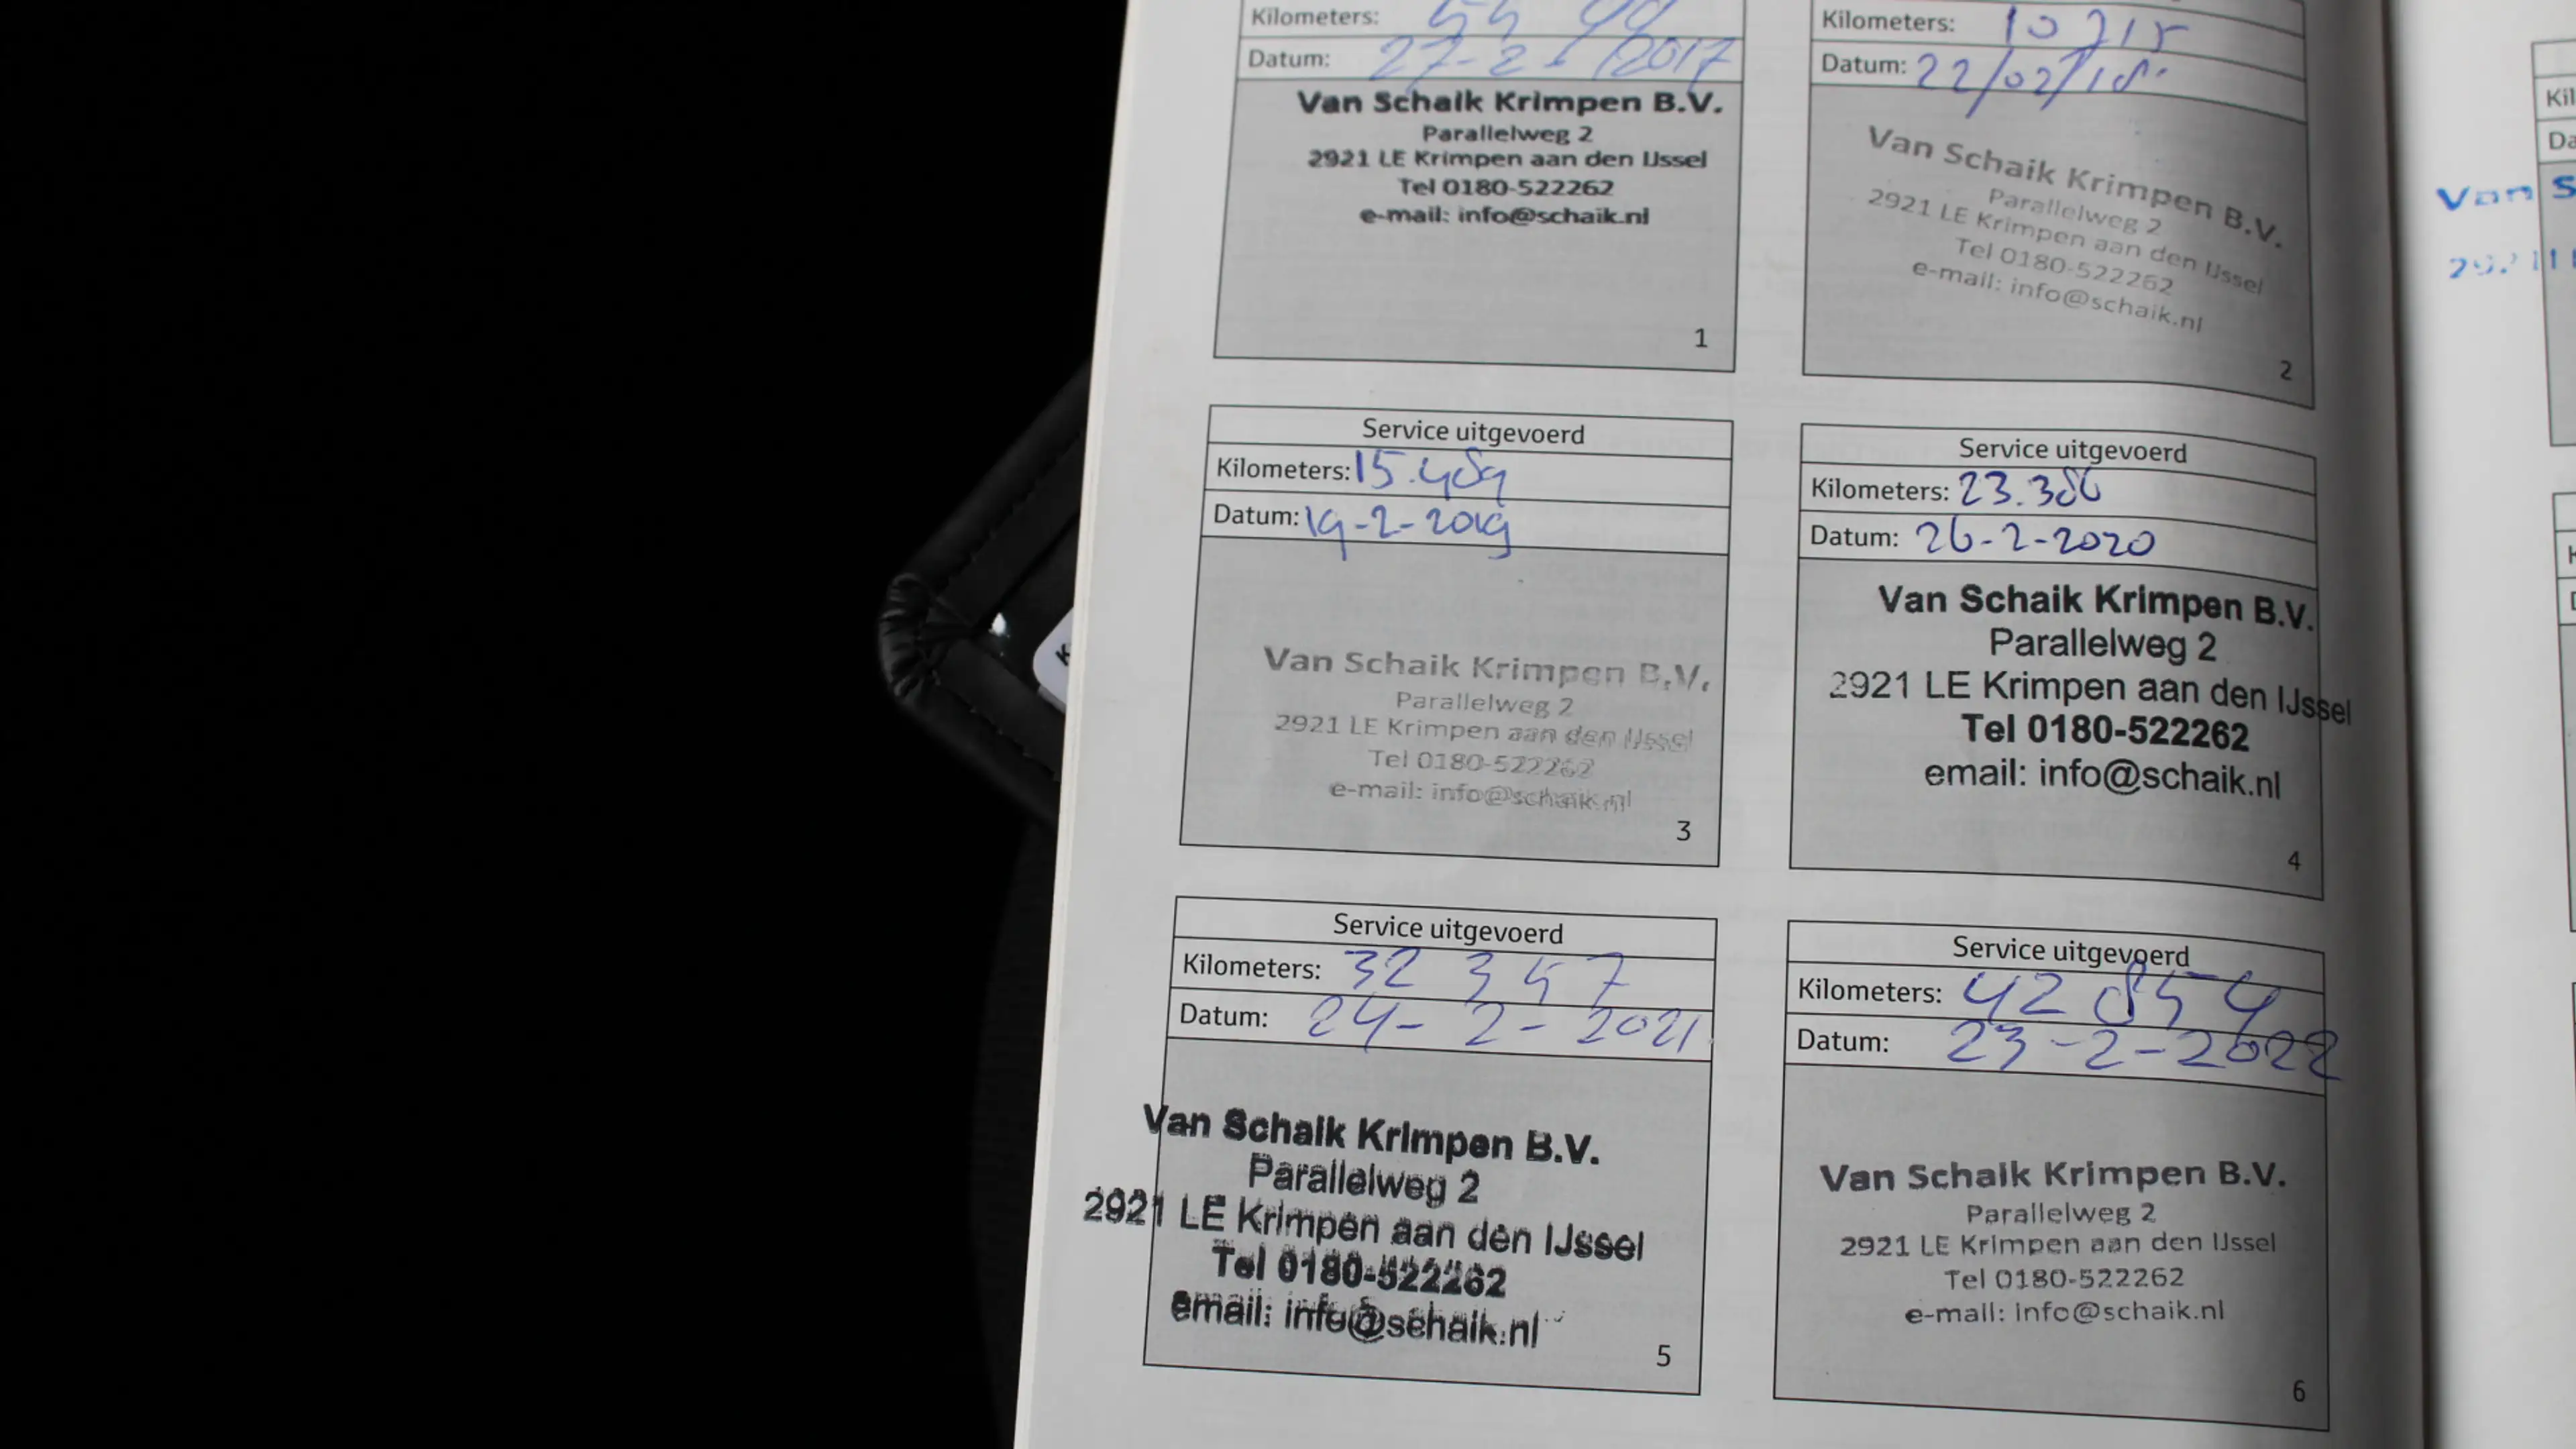 Kilometers:
Datum: 27-2-2017
Van Schaik Krimpen B.V.
Parallelweg 2
2921 LE Krimpen aan den IJssel
Tel 0180-522262
e-mail: info@schaik.nl
1
Kilometers: 10215
Datum: 22/02/18
Van Schaik Krimpen B.V.
Parallelweg 2
2921 LE Krimpen aan den IJssel
Tel 0180-522262
e-mail: info@schaik.nl
2
Service uitgevoerd
Kilometers: 15.489
Datum: 19-2-2019
Van Schaik Krimpen B.V.
Parallelweg 2
2921 LE Krimpen aan den IJssel
Tel 0180-522262
e-mail: info@schaik.nl
3
Service uitgevoerd
Kilometers: 23.386
Datum: 26-2-2020
Van Schaik Krimpen B.V.
Parallelweg 2
2921 LE Krimpen aan den IJssel
Tel 0180-522262
email: info@schaik.nl
4
Service uitgevoerd
Kilometers: 32 347
Datum: 24-2-2021
Van Schaik Krimpen B.V.
Parallelweg 2
2921 LE Krimpen aan den IJssel
Tel 0180-522262
email: info@schaik.nl
5
Service uitgevoerd
Kilometers: 42 854
Datum: 23-2-2022
Van Schaik Krimpen B.V.
Parallelweg 2
2921 LE Krimpen aan den IJssel
Tel 0180-522262
e-mail: info@schaik.nl
6
Kil
Da
Van S